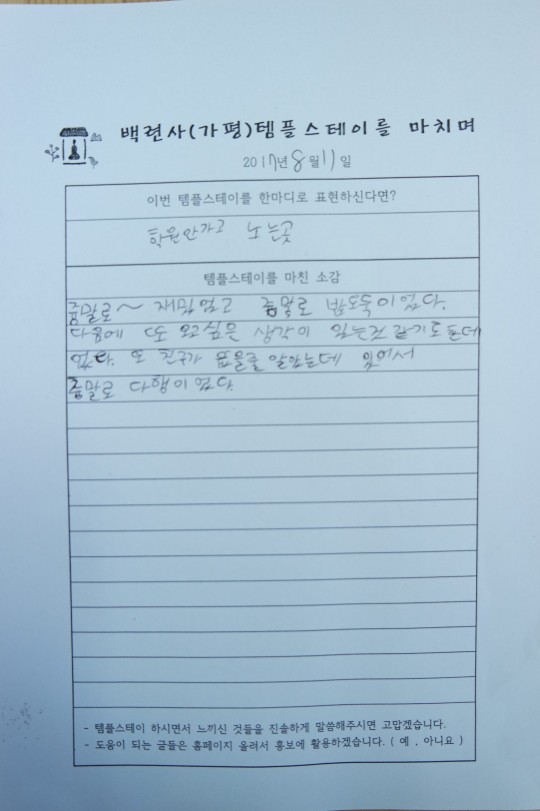 백련사(가평)템플스테이를 마치며
2017년 8월 11일
이번 템플스테이를 한마디로 표현하신다면?
학원안가고 노는곳
템플스테이를 마친 소감
줌말로~ 재밌었고 줌말로 밥도둑이었다.
다음에 또 오고싶은 생각이 있는것 같기도 한데
없다. 또 친구가 요물를 알았는데 있어서
줌말로 다행이었다.
- 템플스테이 하시면서 느끼신 것들을 진솔하게 말씀해주시면 고맙겠습니다.
- 도움이 되는 글들은 홈페이지 올려서 홍보에 활용하겠습니다. ( 예 , 아니요 )